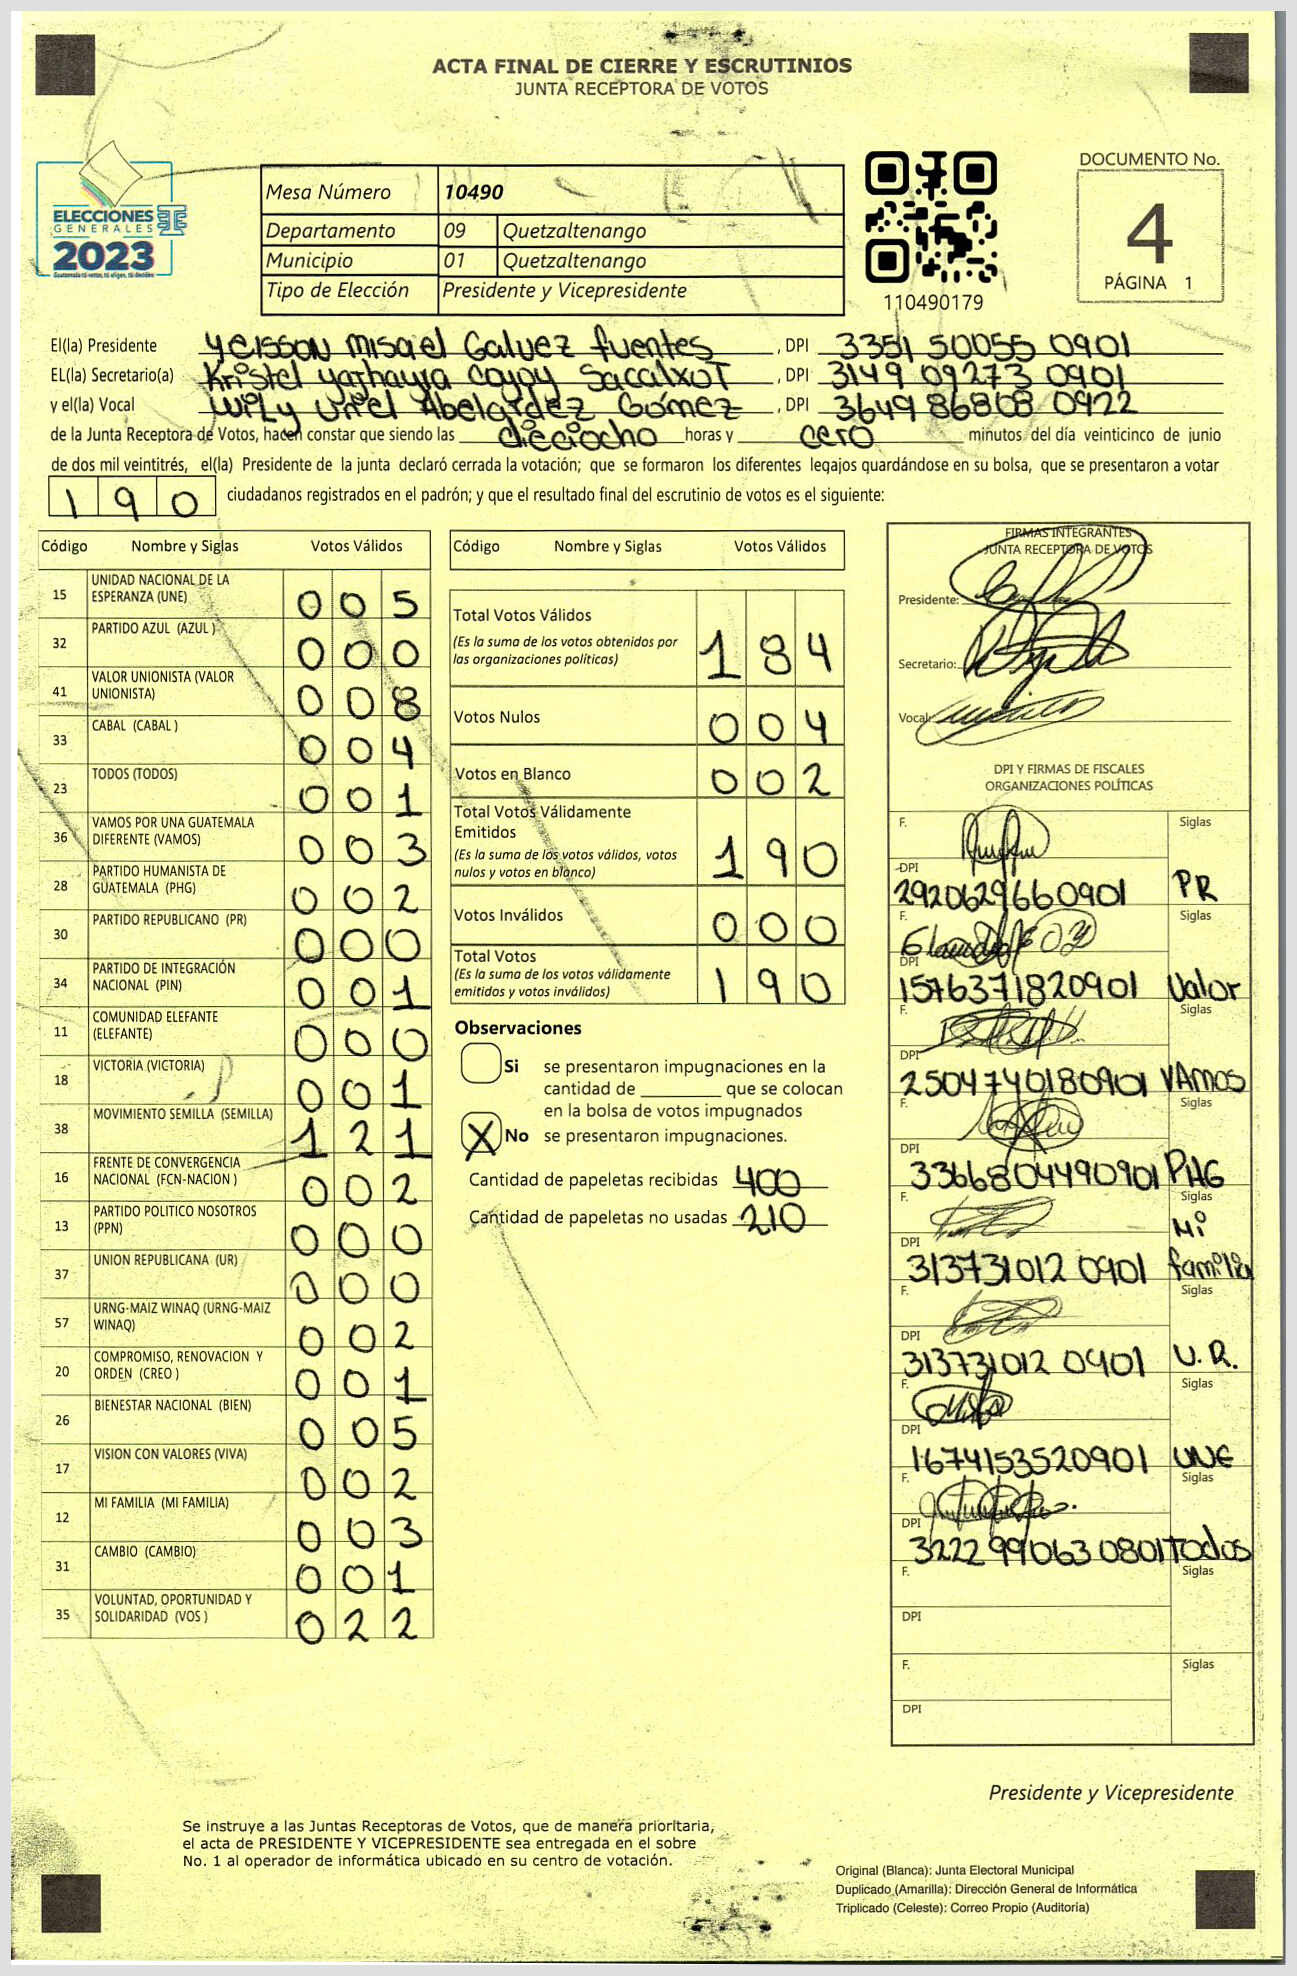 ACTA FINAL DE CIERRE Y ESCRUTINIOS
JUNTA RECEPTORA DE VOTOS
ELECCIONES
GENERALES
2023
Guatemala tú votas, tú eliges, tú decides
Mesa Número 10490
Departamento 09 Quetzaltenango
Municipio 01 Quetzaltenango
Tipo de Elección Presidente y Vicepresidente
110490179
DOCUMENTO No.
4
PÁGINA 1
El(la) Presidente Yeisson Misael Galvez fuentes , DPI 3351 50055 0901
EL(la) Secretario(a) Kristel yathayra Coyoy Sacalxot , DPI 3149 09273 0901
y el(la) Vocal Wily Uriel Abelardez Gómez , DPI 3649 86808 0922
de la Junta Receptora de Votos, hacen constar que siendo las dieciocho horas y cero minutos del día veinticinco de junio
de dos mil veintitrés, el(la) Presidente de la junta declaró cerrada la votación; que se formaron los diferentes legajos quardándose en su bolsa, que se presentaron a votar
190 ciudadanos registrados en el padrón; y que el resultado final del escrutinio de votos es el siguiente:
Código Nombre y Siglas Votos Válidos
15 UNIDAD NACIONAL DE LA ESPERANZA (UNE) 005
32 PARTIDO AZUL (AZUL ) 000
41 VALOR UNIONISTA (VALOR UNIONISTA) 008
33 CABAL (CABAL ) 004
23 TODOS (TODOS) 001
36 VAMOS POR UNA GUATEMALA DIFERENTE (VAMOS) 003
28 PARTIDO HUMANISTA DE GUATEMALA (PHG) 002
30 PARTIDO REPUBLICANO (PR) 000
34 PARTIDO DE INTEGRACIÓN NACIONAL (PIN) 001
11 COMUNIDAD ELEFANTE (ELEFANTE) 000
18 VICTORIA (VICTORIA) 001
38 MOVIMIENTO SEMILLA (SEMILLA) 121
16 FRENTE DE CONVERGENCIA NACIONAL (FCN-NACION ) 002
13 PARTIDO POLITICO NOSOTROS (PPN) 000
37 UNION REPUBLICANA (UR) 000
57 URNG-MAIZ WINAQ (URNG-MAIZ WINAQ) 002
20 COMPROMISO, RENOVACION Y ORDEN (CREO ) 001
26 BIENESTAR NACIONAL (BIEN) 005
17 VISION CON VALORES (VIVA) 002
12 MI FAMILIA (MI FAMILIA) 003
31 CAMBIO (CAMBIO) 001
35 VOLUNTAD, OPORTUNIDAD Y SOLIDARIDAD (VOS ) 022
Código Nombre y Siglas Votos Válidos
Total Votos Válidos 184
(Es la suma de los votos obtenidos por
las organizaciones políticas)
Votos Nulos 004
Votos en Blanco 002
Total Votos Válidamente
Emitidos 190
(Es la suma de los votos válidos, votos
nulos y votos en blanco)
Votos Inválidos 000
Total Votos 190
(Es la suma de los votos válidamente
emitidos y votos inválidos)
Observaciones
Si se presentaron impugnaciones en la
cantidad de ________ que se colocan
en la bolsa de votos impugnados
X No se presentaron impugnaciones.
Cantidad de papeletas recibidas 400
Cantidad de papeletas no usadas 210
FIRMAS INTEGRANTES
JUNTA RECEPTORA DE VOTOS
Presidente:
Secretario:
Vocal:
DPI Y FIRMAS DE FISCALES
ORGANIZACIONES POLÍTICAS
F. Siglas
DPI 2920629660901 PR
F. Siglas
DPI 1576371820901 Valor
F. Siglas
DPI 25047740180901 VAMOS
F. Siglas
DPI 3366804490901 PHG
F. Siglas
DPI 313731012 0901 Mi familia
F. Siglas
DPI 313731012 0901 U.R.
F. Siglas
DPI 1674153520901 UNE
F. Siglas
DPI 3222 99063 0801 Todos
F. Siglas
DPI
F. Siglas
DPI
Presidente y Vicepresidente
Se instruye a las Juntas Receptoras de Votos, que de manera prioritaria,
el acta de PRESIDENTE Y VICEPRESIDENTE sea entregada en el sobre
No. 1 al operador de informática ubicado en su centro de votación.
Original (Blanca): Junta Electoral Municipal
Duplicado (Amarilla): Dirección General de Informática
Triplicado (Celeste): Correo Propio (Auditoría)